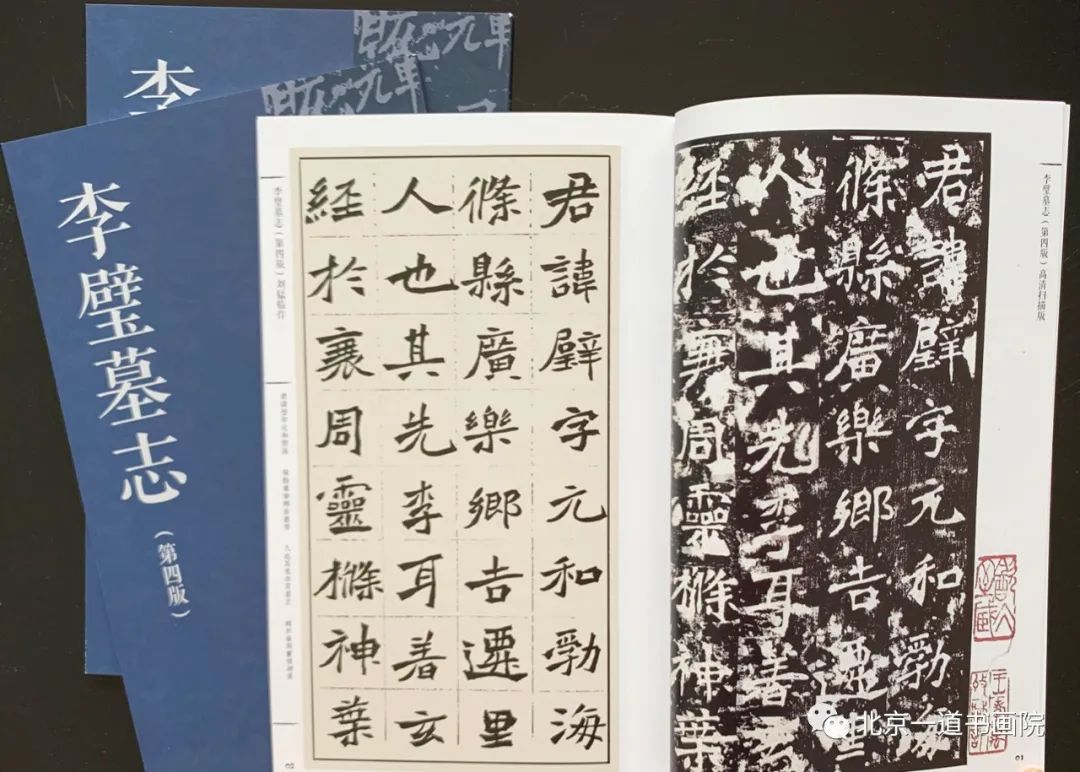 李
李璧墓志
（第四版）
李璧墓志（第四版）高清扫描版
君諱璧字元和勃海
條縣廣樂鄉吉遷里
人也其先李耳著玄
經於衰周靈樤神葉
01
李璧墓志（第四版）
君諱璧字元和勃海
條縣廣樂鄉吉遷里
人也其先李耳著玄
經於衰周靈樤神葉
02
北京一道书画院